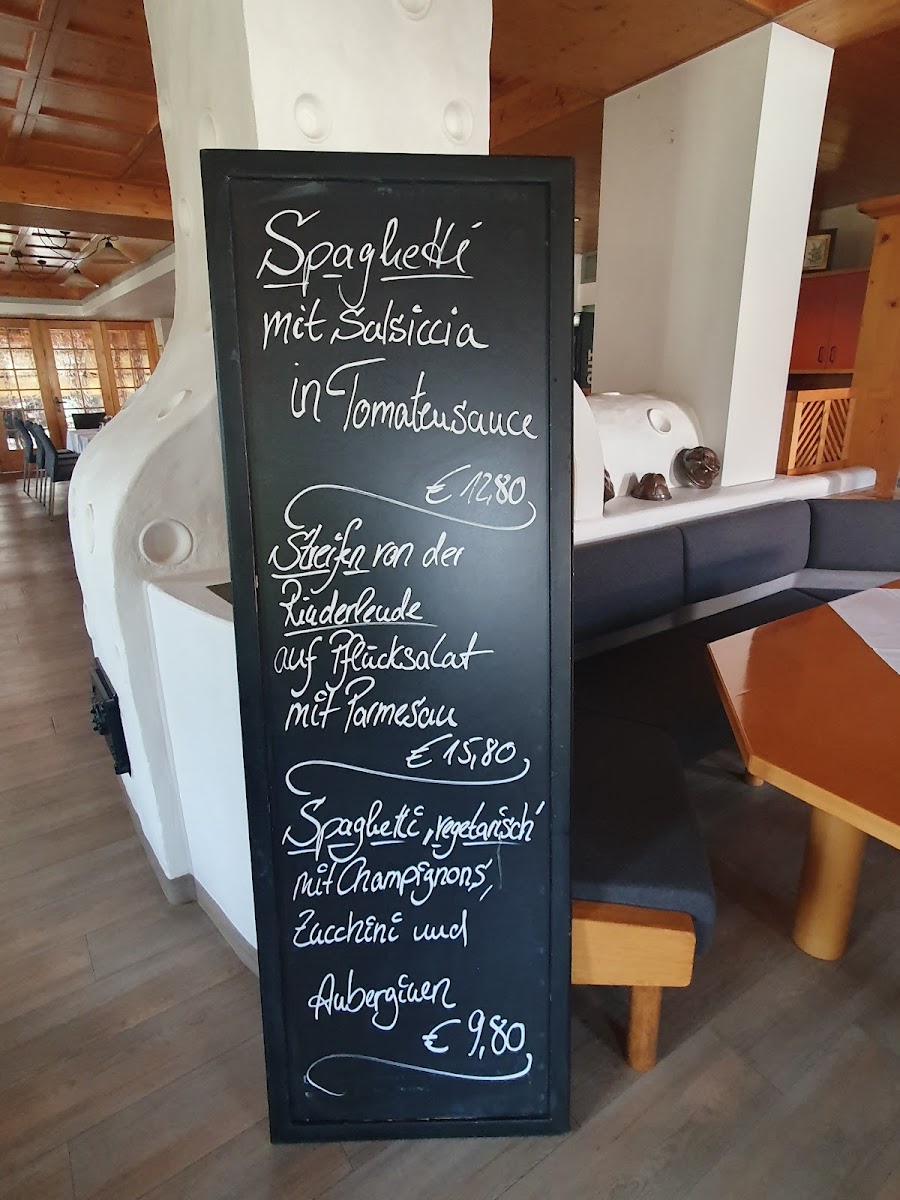 Spaghetti
mit Salsiccia
in Tomatensauce
€ 12,80
Streifen von der
Rinderlende
auf Pflücksalat
mit Parmesan
€ 15,80
Spaghetti ‚vegetarisch‘
mit Champignons,
Zucchini und
Auberginen
€ 9,80